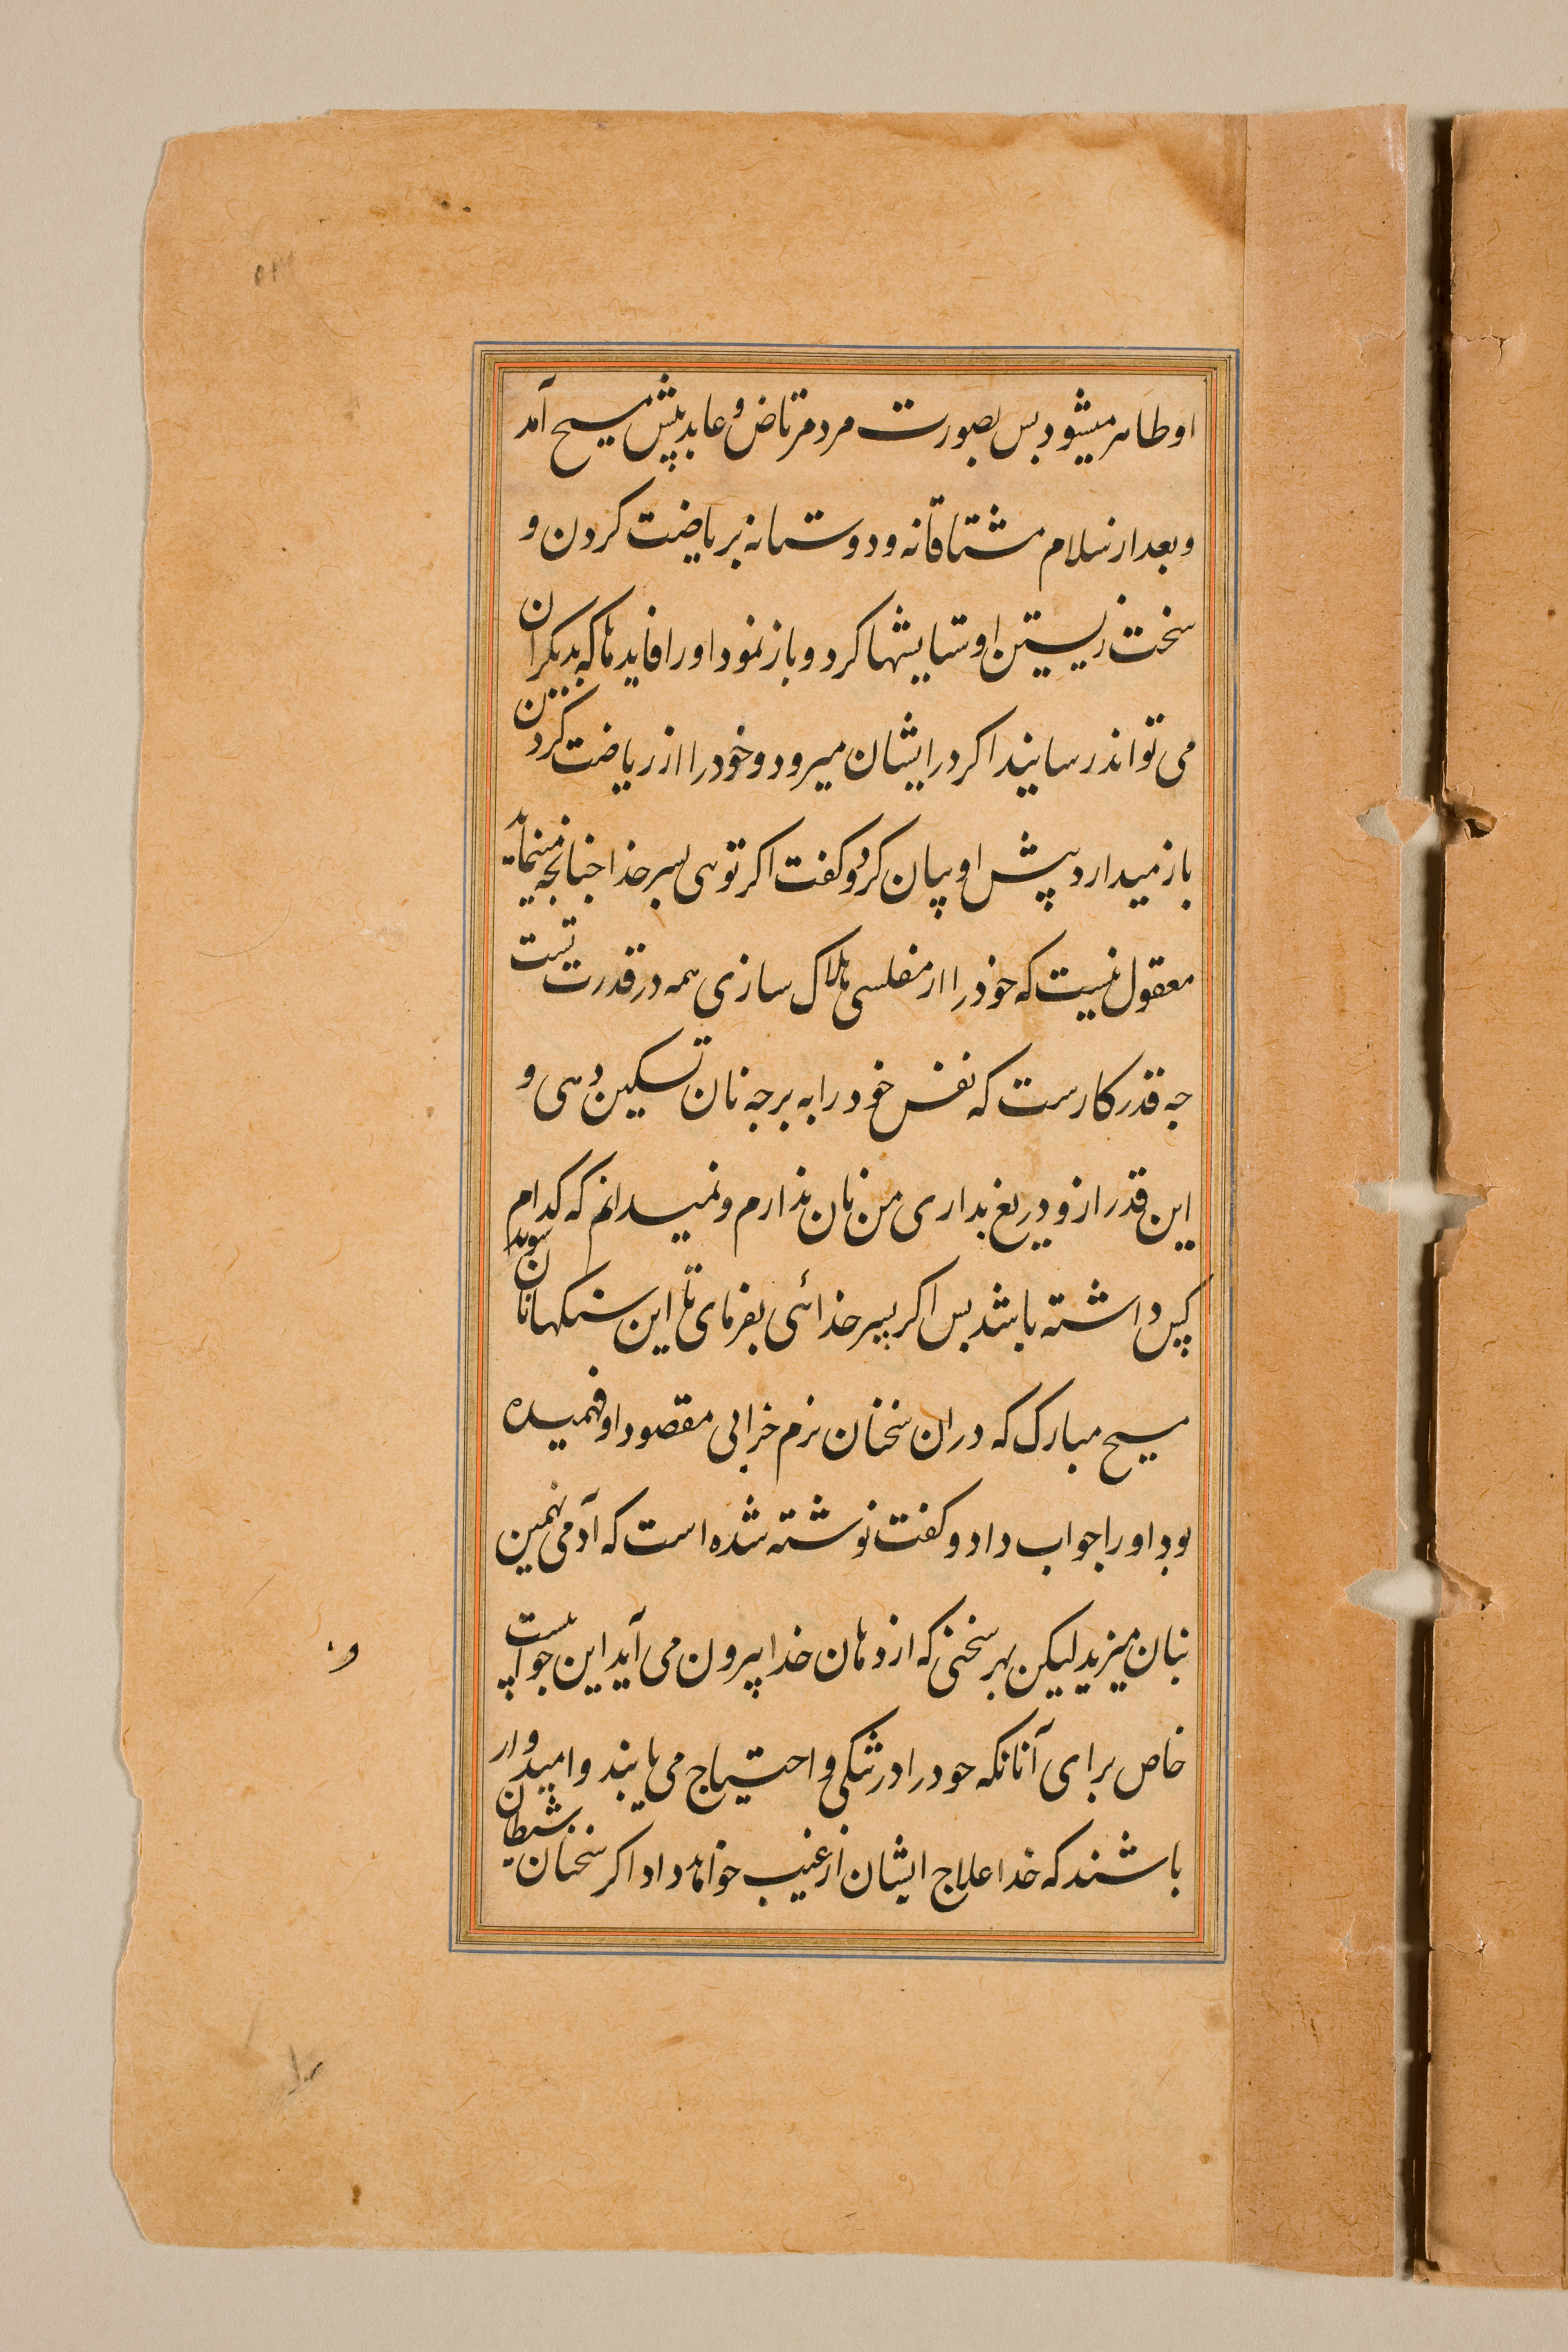 او ظاهر میشود بس بصورت مرد مرتاض و عابد پیش مسیح آمد
و بعد از سلام مشتاقانه و دوستانه بر ریاضت کردن و
سخت زیستن او ستایشها کرد و باز نمود اورا فایدها که بدیکران
می تواند رسانید اکر در ایشان میرود و خود را از ریاضت کردن
باز میدارد پیش او بیان کرد و کفت اکر تو هی بسر خدا جنانجه مینماید
معقول نیست که خود را از مفلسی هلاک سازی همه در قدرت تست
جه قدر کارست که نفس خود را به برجه نان تسکین دهی و
این قدر ازو دریغ نداری من نان ندارم و نمیدانم که کدام
کس داشته باشد بس اکر بسر خدائی بفرمای تا این سنکها نان شوند
مسیح مبارک که در ان سخنان نرم خرابی مقصود او فهمیده
بود اورا جواب داد و کفت نوشته شده است که آدمی نهمین
بنان میزید لیکن بهر سخنی که از دهان خدا بیرون می آید این جوابیست
خاص برای آنانکه خود را در تنکی و احتیاج می یابند و امیدوار
باشند که خدا علاج ایشان از غیب خواهد داد اکر سخنان شیطان